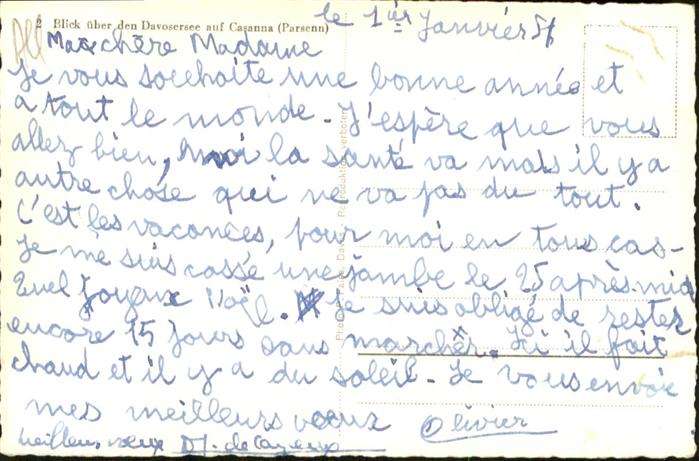 le 1ier Janvier 57
2 Blick über den Davosersee auf Casanna (Parsenn)
Ma chère Madame
Je vous souhaite une bonne année et
a tout le monde. J'espère que vous
allez bien, moi la santé va mais il y a
autre chose qui ne va pas du tout.
C'est les vacances, pour moi en tous cas-
Je me suis cassé une jambe le 25 après-midi
Quel Joyaux Noël. Je suis obligé de rester
encore 15 jours sans marchêr. Ici il fait
chaud et il y a du soleil. Je vous envoie
mes meilleurs vœux Olivier
meilleurs vœux